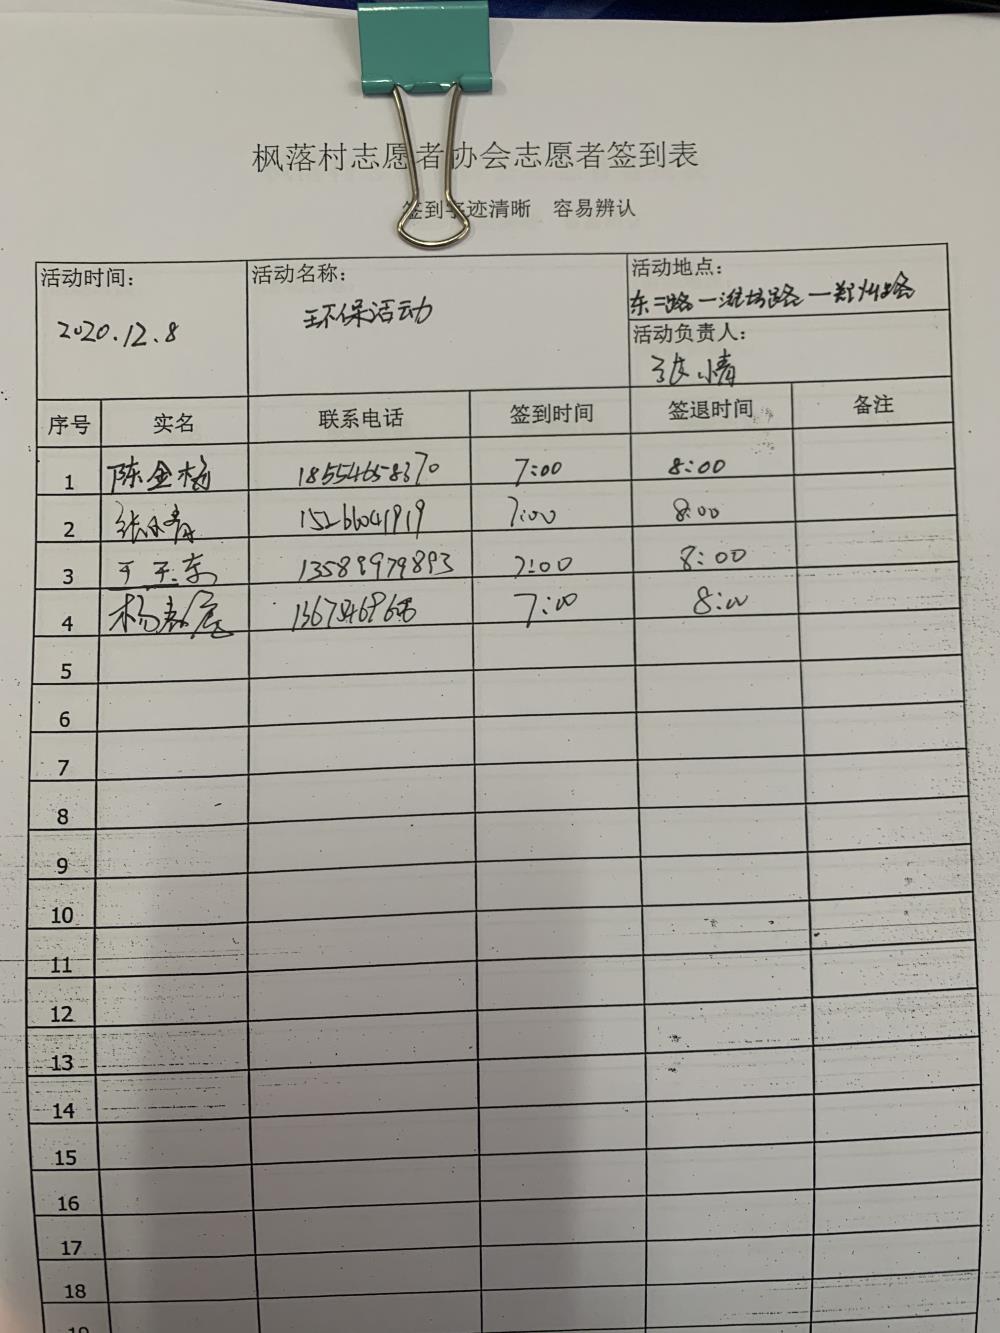 枫落村志愿者协会志愿者签到表
签到字迹清晰 容易辨认
活动时间: 活动名称: 活动地点:
2020.12.8 环保活动 东二路一潍坊路一郑州路
活动负责人:
张情
序号 实名 联系电话 签到时间 签退时间 备注
1 陈金杨 18554658370 7:00 8:00
2 15266041919 7:00 8:00
3 于玉东 13589979893 7:00 8:00
4 杨春 7:00 8:00
5
6
7
8
9
10
11
12
13
14
15
16
17
18
19